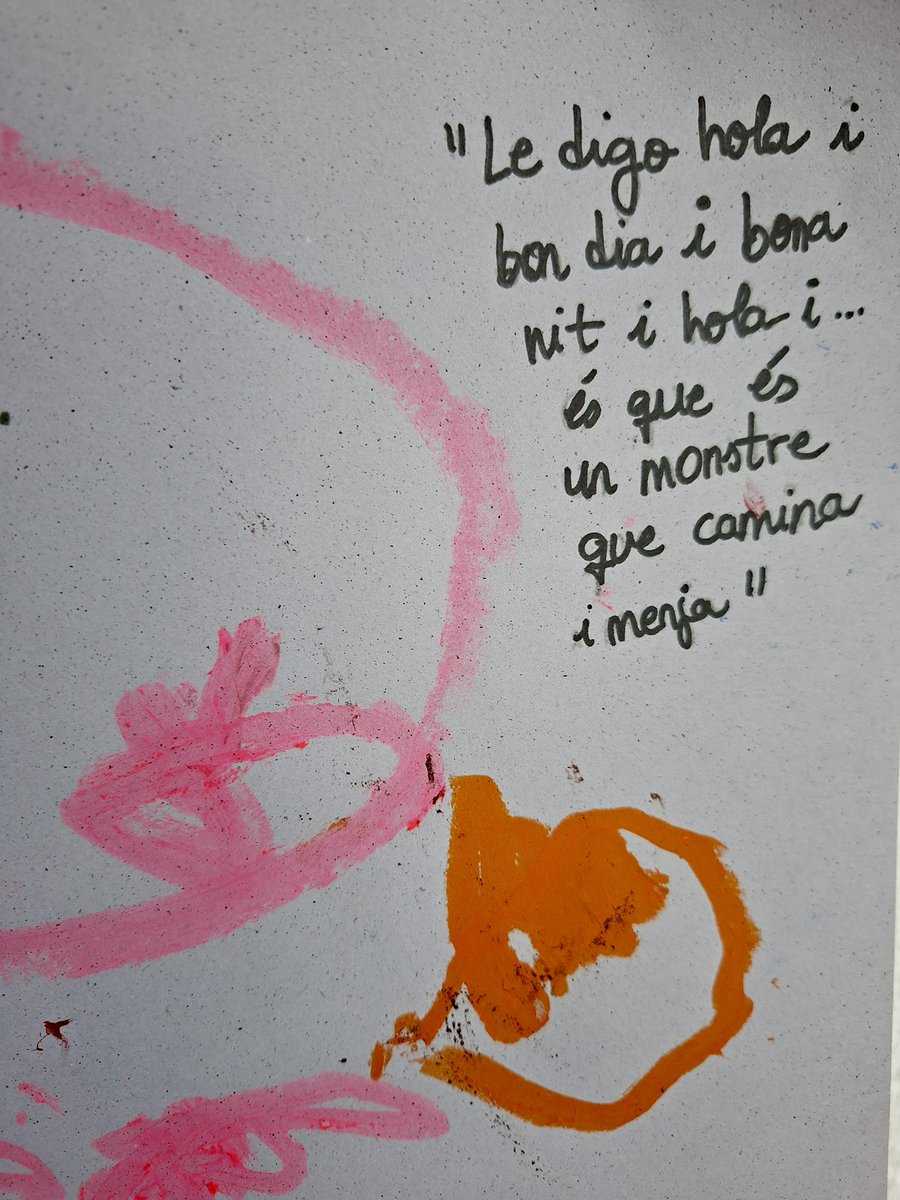 "Le digo hola i
bon dia i bona
nit i hola i...
és que és
un monstre
que camina
i menja"